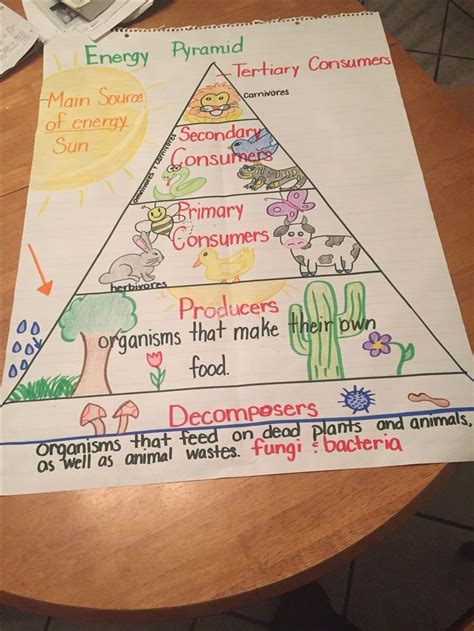 Energy Pyramid
Tertiary Consumers
Carnivores
Main Source
of energy
Sun
Secondary
Consumers
omnivores carnivores
Primary
Consumers
herbivores
Producers
organisms that make their own
food.
Decomposers
organisms that feed on dead plants and animals,
as well as animal wastes. fungi & bacteria